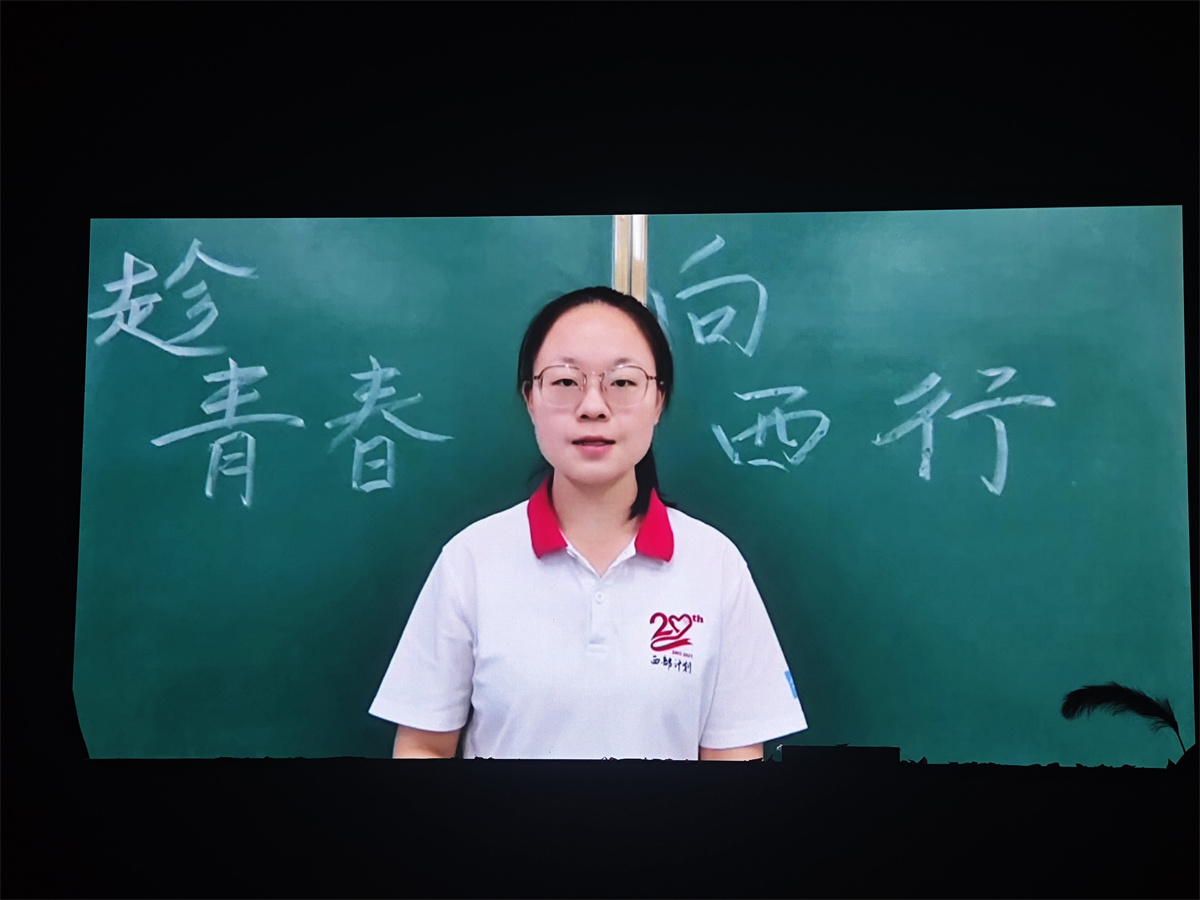 趁
青春
向
西行
20th
2003-2023
西部计划